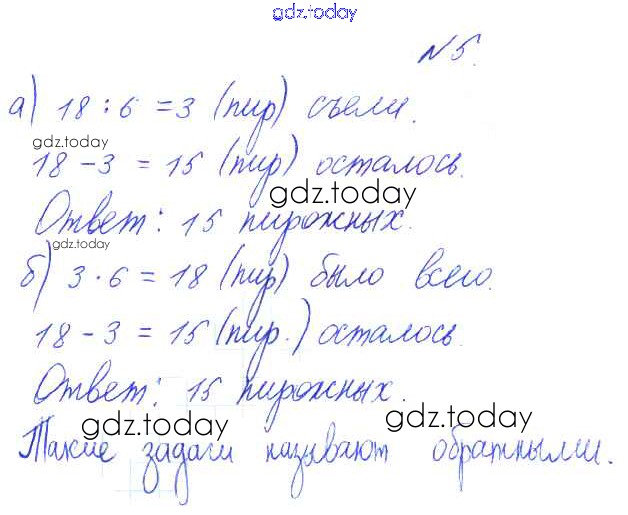 gdz.today
№ 5.
а) 18 : 6 = 3 (пир) съели.
gdz.today
18 - 3 = 15 (пир) осталось.
gdz.today
Ответ: 15 пирожных.
gdz.today
б) 3 · 6 = 18 (пир) было всего.
18 - 3 = 15 (пир.) осталось.
Ответ: 15 пирожных.
gdz.today
gdz.today
Такие задачи называют обратными.